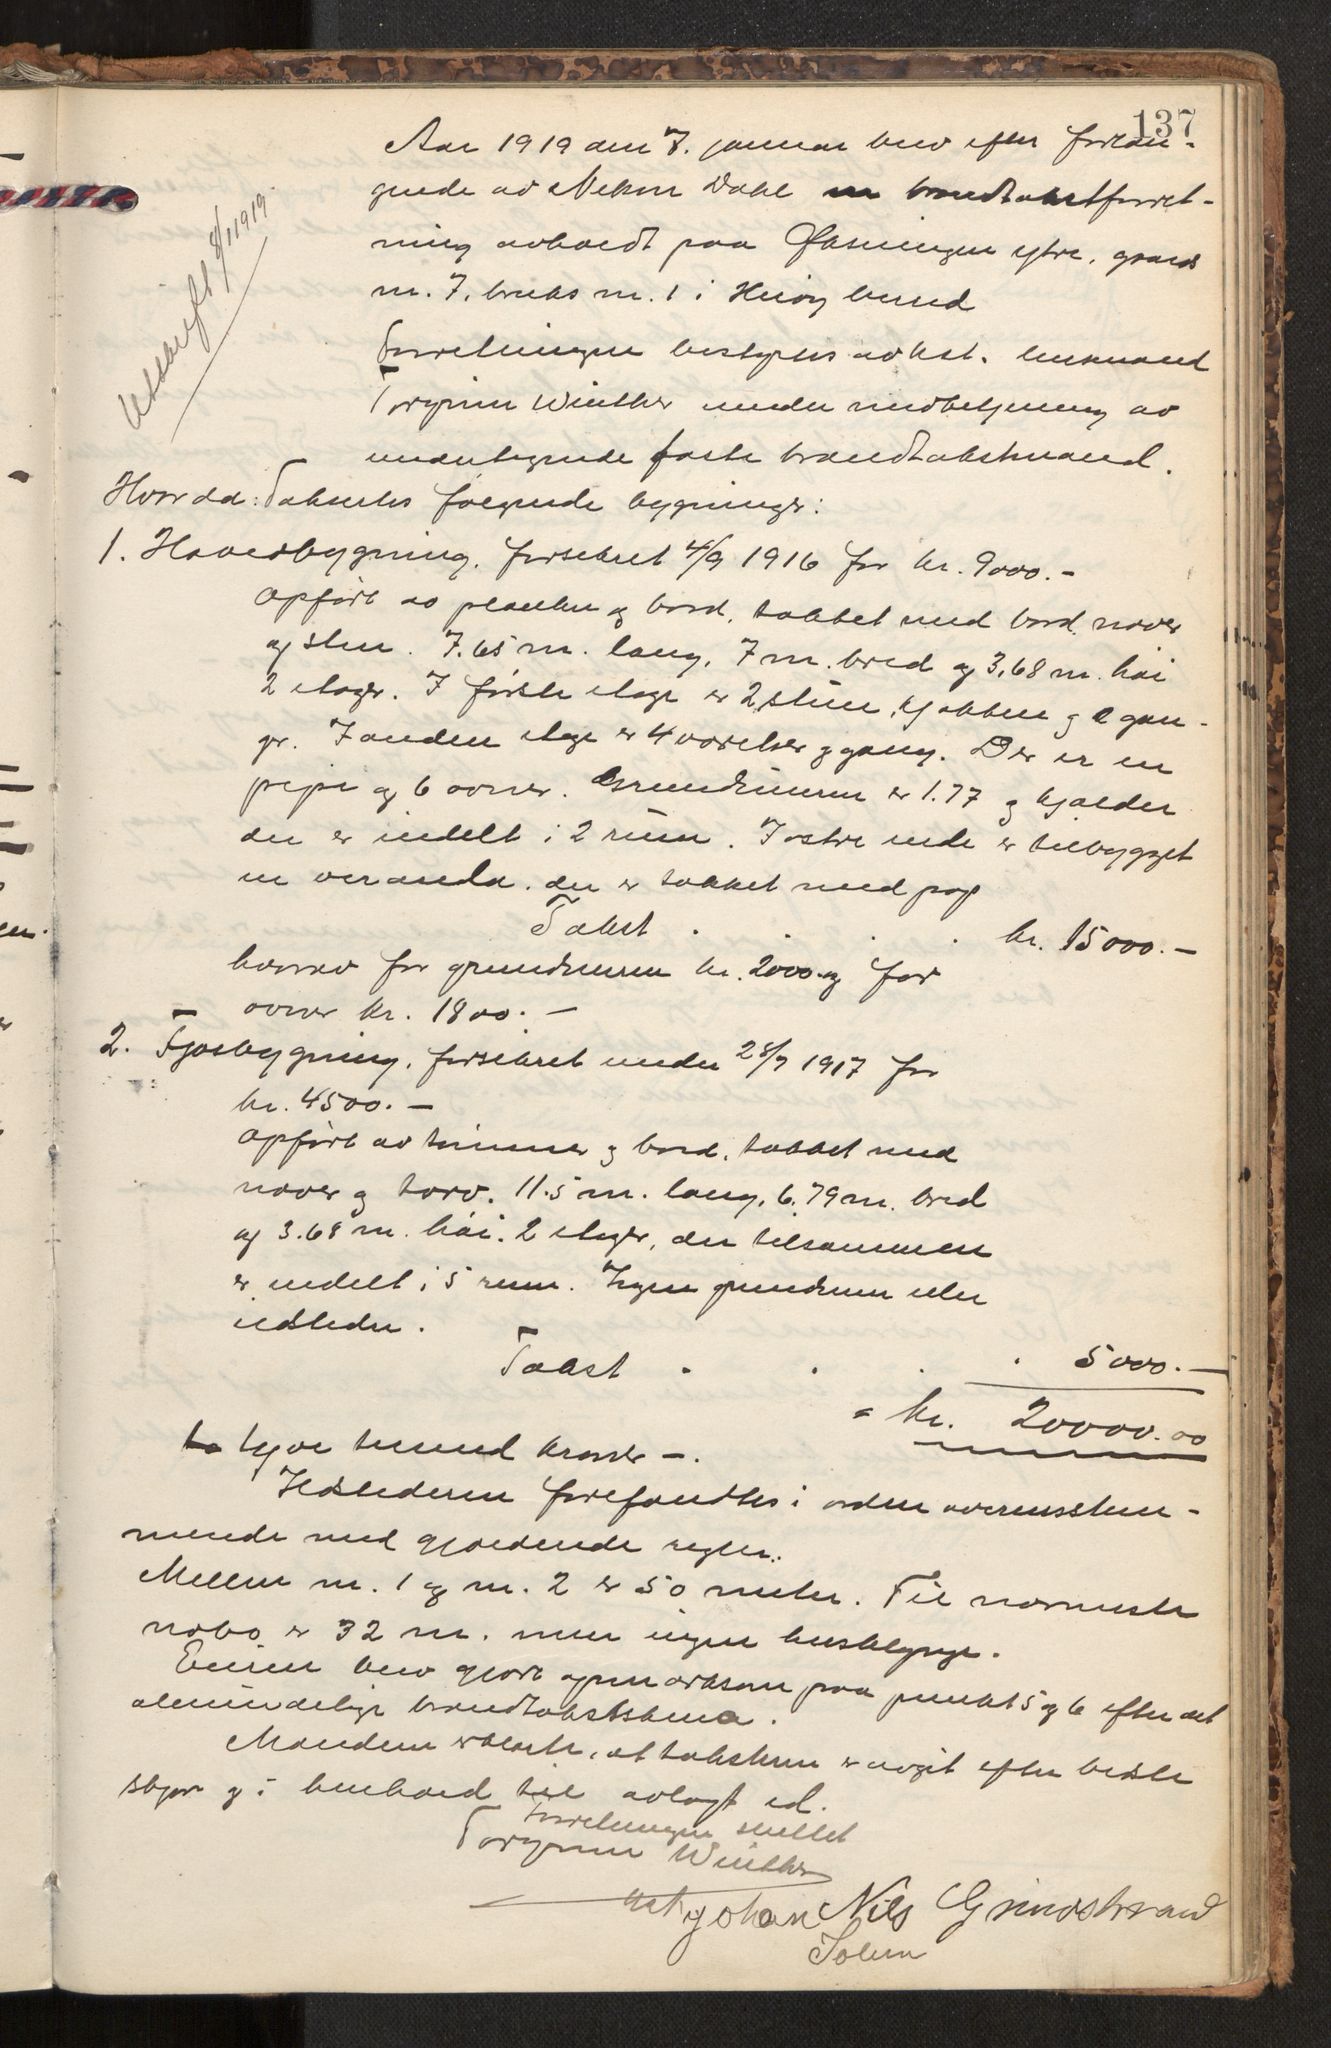 137
Utskrift 8/1 1919.
Aar 1919 den 7. januar blev efter forlan-
gende av Nekon Dahl en brandtakstforret-
ning avholdt paa Øksningen ytre, gaards
nr. 7, bruks nr. 1 i Herøy herred
Forretningen bestyres av kst. lensmand
Torginn Winther under medbetjening av
undertegnede faste brandtakstmænd.
Hvorda: Taksertes følgende bygninger:
1. Hovedbygning, forsikret 4/9 1916 for kr. 9000.-
Opført av planker og bord, takket med bord, næver
og sten. 7.65 m. lang, 7 m. bred og 3,68 m. höi
2 etager. I første etage er 2 stuer, kjøkken og 2 gan-
ger. I anden etage er 4 værelser og gang. Der er en
pipe og 6 ovner. Grundmuren er 1.77 og kjælder
den er indelt i 2 rum. I østre ende er tilbygget
en veranda, den er takket med pap
Takst . . . . kr. 15000.-
hvorav for grundmuren kr. 2000 og for
ovner kr. 1800.-
2. Fjøsbygning, forsikret under 28/9 1917 for
kr. 4500.-
Opført av tømmer og bord, takket med
næver og torv. 11.5 m. lang, 6.79 m. bred
og 3.68 m. höi. 2 etager, der tilsammen
er indelt i 5 rum. Ingen grundmur eller
ildsteder.
Takst . . . . 5000.-
= kr. 20000.00
to tyve tusend kroner -.
Ildstederne forefandtes i orden overensstem-
mende med gjældende regler.
Mellem nr. 1 og nr. 2 er 50 meter. Til nærmeste
nabo er 32 m. men ingen husklynge.
Eieren blev gjort opmerksom paa punkt 5 og 6 efter det
almindelige brandtakstskema.
Mændene erklærte, at taksterne er avgit efter bedste
skjøn og i henhold til avlagt ed.
Forretningen sluttet
Torginn Winther
kst.
Johan Nils Grindstrand
Solem